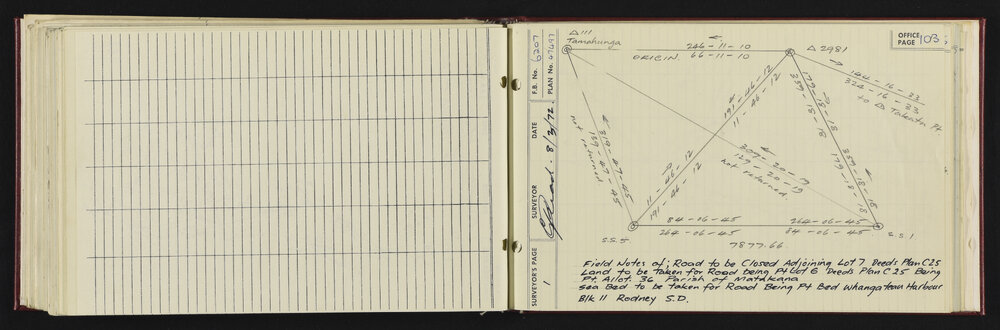 OFFICE PAGE 103
F.B. No. 6207
PLAN No. 67697
DATE 8/3/72.
SURVEYOR
SURVEYOR'S PAGE 1
△ 111
Tamahunga
246-11-10
ORIGIN. 66-11-10
△ 2981
144-16-23
324-16-23
to △ Takatu Pt
191-46-12
11-46-12
179-18-18
359-18-18
319-27-45
139-27-45
not returned
309-20-19
129-20-19
not returned.
11-46-12
191-46-12
359-18-18
179-18-18
84-06-45
264-06-45
264-06-45
84-06-45
S.S.5
S.S.1
7877.66.
Field Notes of; Road to be Closed Adjoining Lot 7 Deeds Plan C25
Land to be Taken for Road being Pt Lot 6 Deeds Plan C25 Being
Pt. Allot. 36 Parish of Matakana
Sea Bed to be taken for Road Being Pt Bed Whangateau Harbour
Blk II Rodney S.D.